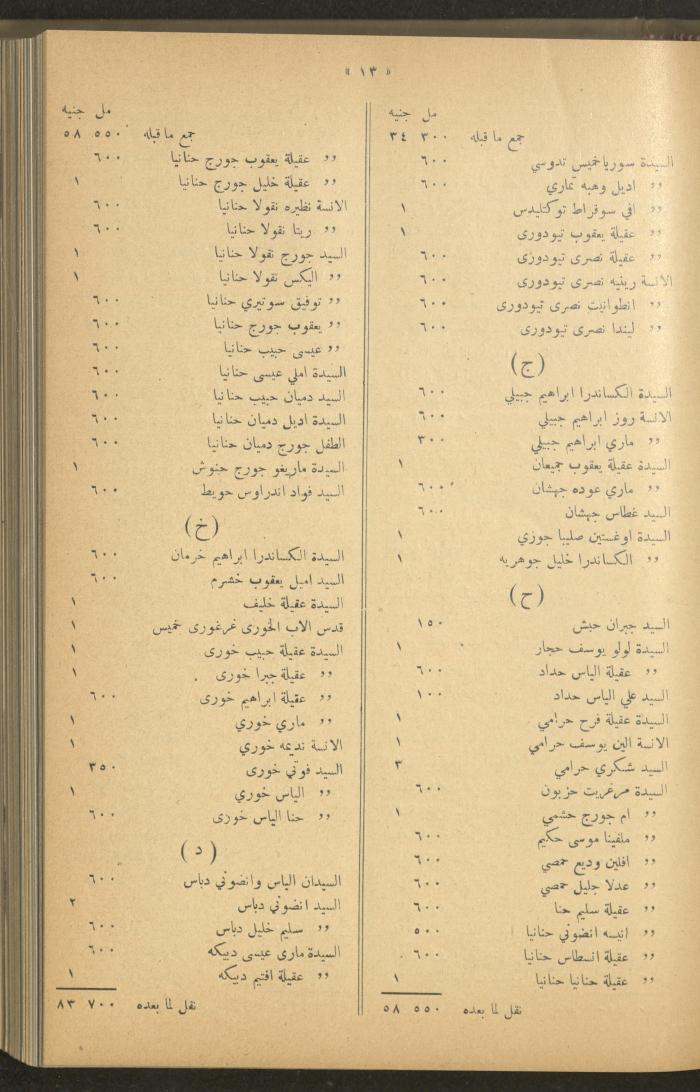 « ١٣ »
مل جنيه
جمع ما قبله ٣٠٠ ٣٤
السيدة سوريا خميس تدوسي ٦٠٠
״ اديل وهبه تماري ٦٠٠
״ افي سوفراط توكتليدس ١
״ عقيلة يعقوب تيودورى ١
״ عقيلة نصرى تيودورى ٦٠٠
الانسة رينيه نصرى تيودورى ٦٠٠
״ انطوانيت نصرى تيودورى ٦٠٠
״ ليندا نصرى تيودورى ٦٠٠
(ج)
السيدة الكساندرا ابراهيم جبيلي ٦٠٠
الانسة روز ابراهيم جبيلي ٦٠٠
״ ماري ابراهيم جبيلي ٣٠٠
السيدة عقيلة يعقوب جميعان ١
״ ماري عوده جهشان ٦٠٠
السيد غطاس جهشان ٦٠٠
السيدة اوغستين صليبا جوزي ١
״ الكساندرا خليل جوهريه ١
(ح)
السيد جبران حبش ١٥٠
السيدة لولو يوسف حجار ١
״ عقيلة الياس حداد ٦٠٠
السيد علي الياس حداد ١٠٠
السيدة عقيلة فرح حرامي ١
الانسة الين يوسف حرامي ١
السيد شكري حرامي ٣
السيدة مرغريت حزبون ٦٠٠
״ ام جورج حشمي ١
״ ملفينا موسى حكيم ٦٠٠
״ افلين وديع حمصي ٦٠٠
״ عدلا جليل حمصي ٦٠٠
״ عقيلة سليم حنا ٦٠٠
״ انيسه انضوني حنانيا ٥٠٠
״ عقيلة انسطاس حنانيا ٦٠٠
״ عقيلة حنانيا حنانيا ١
نقل لما بعده ٥٥٠ ٥٨
مل جنيه
جمع ما قبله ٥٥٠ ٥٨
״ عقيلة يعقوب جورج حنانيا ٦٠٠
״ عقيلة خليل جورج حنانيا ١
الانسة نظيره نقولا حنانيا ٦٠٠
״ ريتا نقولا حنانيا ٦٠٠
السيد جورج نقولا حنانيا ١
״ اليكس نقولا حنانيا ١
״ توفيق سوتيري حنانيا ٦٠٠
״ يعقوب جورج حنانيا ٦٠٠
״ عيسى حبيب حنانيا ٦٠٠
السيدة املي عيسى حنانيا ٦٠٠
السيد دميان حبيب حنانيا ٦٠٠
السيدة اديل دميان حنانيا ٦٠٠
الطفل جورج دميان حنانيا ٦٠٠
السيدة ماريغو جورج حنوش ١
السيد فواد اندراوس حويط ٦٠٠
(خ)
السيدة الكساندرا ابراهيم خرمان ٦٠٠
السيد اميل يعقوب خشرم ٦٠٠
السيدة عقيلة خليف ١
قدس الاب الخورى غرغورى خميس ١
السيدة عقيلة حبيب خورى ١
״ عقيلة جبرا خورى ١
״ عقيلة ابراهيم خورى ٦٠٠
״ ماري خوري ١
الانسة نديمه خوري ١
السيد فوتي خورى ٣٥٠
״ الياس خوري ١
״ حنا الياس خورى ٦٠٠
(د)
السيدان الياس وانضوني دباس ٦٠٠
السيد انضوني دباس ٢
״ سليم خليل دباس ٦٠٠
السيدة مارى عيسى دبيكه ٦٠٠
״ عقيلة افتيم دبيكه ١
نقل لما بعده ٧٠٠ ٨٣